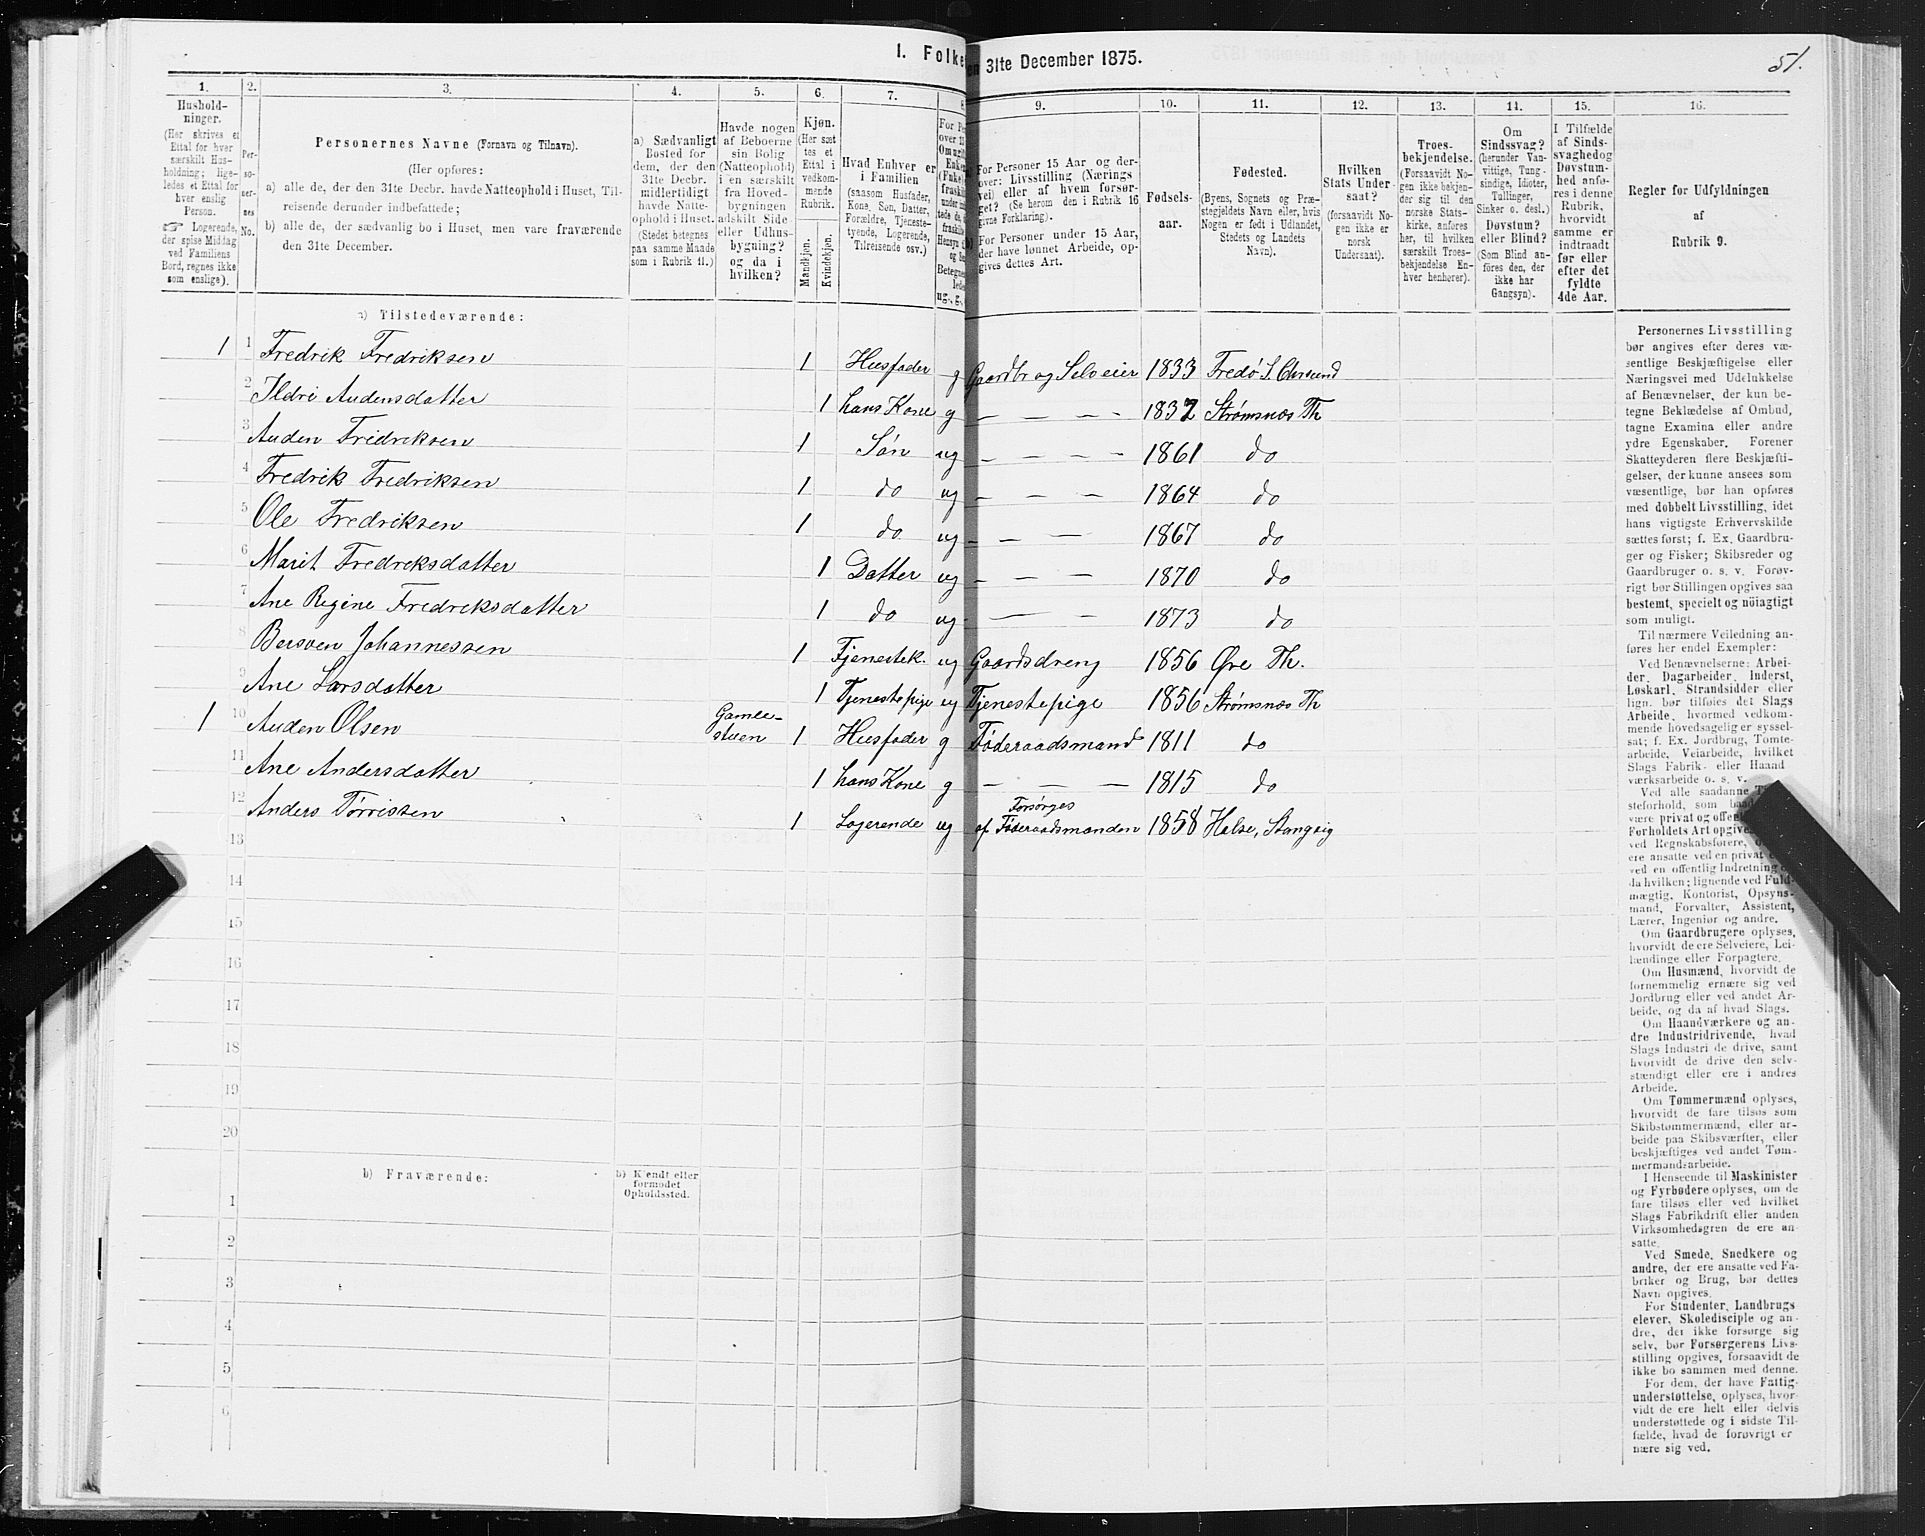 I. Folke
en 31te December 1875.
51.
1.
2.
3.
4.
5.
6.
7.
8
9.
10.
11.
12.
13.
14.
15.
16.
Hushold-
ninger.
(Her skrives et
Ettal for hver
særskilt Hus-
holdning; lige-
ledes et Ettal for
hver enslig
Person.
☞ Logerende,
der spise Middag
ved Familiens
Bord, regnes ikke
som enslige).
Per-
so-
ner-
nes
No.
Personernes Navne (Fornavn og Tilnavn).
(Her opføres:
a) alle de, der den 31te Decbr. havde Natteophold i Huset, Til-
reisende derunder indbefattede;
b) alle de, der sædvanlig bo i Huset, men vare fraværende
den 31te December.
a) Sædvanligt
Bosted for
dem, der den
31te Decbr.
midlertidigt
havde Natte-
ophold i Huset.
(Stedet betegnes
paa samme Maade
som i Rubrik 11.)
Havde nogen
af Beboerne
sin Bolig
(Natteophold)
i en særskilt
fra Hoved-
bygningen
adskilt Side-
eller Udhus-
bygning?
og da i
hvilken?
Kjøn.
(Her sæt
tes et
Ettal i
vedkom-
mende
Rubrik.
Mandkjøn.
Kvindekjøn.
Hvad Enhver er
i Familien
(saasom Husfader,
Kone, Søn, Datter,
Forældre, Tjeneste-
tyende, Logerende,
Tilreisende osv.)
For Personer 15 Aar og der-
over: Livsstilling (Nærings
vei) eller af hvem forsør-
get? (Se herom den i Rubrik 16
givne Forklaring).
For Personer under 15 Aar,
der have lønnet Arbeide, op-
gives dettes Art.
Fødsels-
aar.
Fødested.
(Byens, Sognets og Præ-
stegjeldets Navn eller, hvis
Nogen er født i Udlandet,
Stedets og Landets
Navn).
Hvilken
Stats Under-
saat?
(forsaavidt No-
gen ikke er
norsk
Undersaat).
Troes-
bekjendelse.
(Forsaavidt No-
gen ikke bekjen-
der sig til den
norske Stats-
kirke, anføres
her, til hvilken
særskilt Troes-
bekjendelse En-
hver henhører).
Om
Sindssvag?
(herunder Van-
vittige, Tung-
sindige, Idioter,
Tullinger,
Sinker o. desl.)
Døvstum?
eller Blind?
(Som Blind an-
føres den, der
ikke har
Gangsyn).
I Tilfælde
af Sinds-
svaghed og
Døvstum-
hed anfø-
res i denne
Rubrik,
hvorvidt
samme er
indtraadt
før eller
efter det
fyldte
4de Aar.
Regler for Udfyldningen
af
Rubrik 9.
a) Tilstedeværende:
1 1 Fredrik Fredriksen 1 Husfader g Gaardbr og Selveier 1833 Fredø S. Chrsund
2 Ildri Audensdatter 1 hans Kone g — — — — 1832 Strømsnæs Th
3 Auden Fredriksen 1 Søn ug — — — — 1861 do
4 Fredrik Fredriksen 1 do ug — — — 1864 do
5 Ole Fredriksen 1 do ug — — — 1867 do
6 Marit Fredriksdatter 1 Datter ug — — — 1870 do
7 Ane Regine Fredriksdatter 1 do ug — — — 1873 do
8 Bersven Johannessen 1 Tjenestek. ug Gaardsdreng 1856 Øre Th.
9 Ane Larsdatter 1 Tjenestepige ug Tjenestepige 1856 Strømsnæs Th
1 10 Auden Olsen Gamle-stuen 1 Husfader g Føderaadsmand 1811 do
11 Ane Andersdatter 1 hans Kone g — — — 1815 do
12 Anders Tørrissen 1 Logerende ug Forsørges af Føderaadsmanden 1858 Halse, Stangvig
13
14
15
16
17
18
19
20
b) Fraværende:
b) Kjendt eller
formodet
Opholdssted.
1
2
3
4
5
6
Personernes Livsstilling
bør angives efter deres væ-
sentlige Beskjæftigelse eller
Næringsvei med Udelukkelse
af Benævnelser, der kun be-
tegne Beklædelse af Ombud,
tagne Examina eller andre
ydre Egenskaber. Forener
Skatteyderen flere Beskjæfti-
gelser, der kunne ansees som
væsentlige, bør han opføres
med dobbelt Livsstilling, idet
hans vigtigste Erhvervskilde
sættes først; f. Ex. Gaardbru-
ger og Fisker; Skibsreder og
Gaardbruger o. s. v. Forøv-
rigt bør Stillingen opgives saa
bestemt, specielt og nøiagtigt
som muligt.
Til nærmere Veiledning an-
føres her endel Exempler:
Ved Benævnelserne: Arbei-
der, Dagarbeider, Inderst,
Løskarl, Strandsidder eller
lign. bør tilføies det Slags
Arbeide, hvormed vedkom-
mende hovedsagelig er syssel-
sat; f. Ex. Jordbrug, Tomte-
arbeide, Veiarbeide, hvilket
Slags Fabrik- eller Haand
værksarbeide o. s. v.
Ved alle saadanne
steforhold, som
være privat og
Forholdets Art
ved Regnskabsførere,
ere ansatte ved en privat
ved en offentlig Indretning
da hvilken; lignende ved Fuld-
mægtig, Kontorist, Opsyns-
mand, Forvalter, Assistent,
Lærer, Ingeniør og andre.
Om Gaardbrugere oplyses,
hvorvidt de ere Selveiere, Lei-
lændinge eller Forpagtere.
Om Husmænd, hvorvidt de
fornemmelig ernære sig ved
Jordbrug eller ved andet Ar-
beide, og da af hvad Slags.
Om Haandværkere og an-
dre Industridrivende, hvad
Slags Industri de drive, samt
hvorvidt de drive den selv-
stændigt eller ere i andres
Arbeide.
Om Tømmermænd oplyses,
hvorvidt de fare tilsøs som
Skibstømmermænd, eller ar-
beide paa Skibsværfter, eller
beskjæftiges ved andet Tøm-
mermandsarbeide.
I Henseende til Maskinister
og Fyrbødere oplyses, om de
fare tilsøs eller ved hvilket
Slags Fabrikdrift eller anden
Virksomhedsgren de ere an-
satte.
Ved Smede, Snedkere og
andre, der ere ansatte ved Fa-
briker og Brug, bør dettes
Navn opgives.
For Studenter, Landbrugs
elever, Skoledisciple og an-
dre, der ikke forsørge sig
selv, bør Forsørgerens Livs-
stilling opgives, forsaavidt de
ikke bo sammen med denne.
For dem, der have Fattig-
understøttelse, oplyses, hvor-
vidt de ere helt eller delvis
understøttede og i sidste Til-
fælde, hvad de forøvrigt er
nære sig ved.